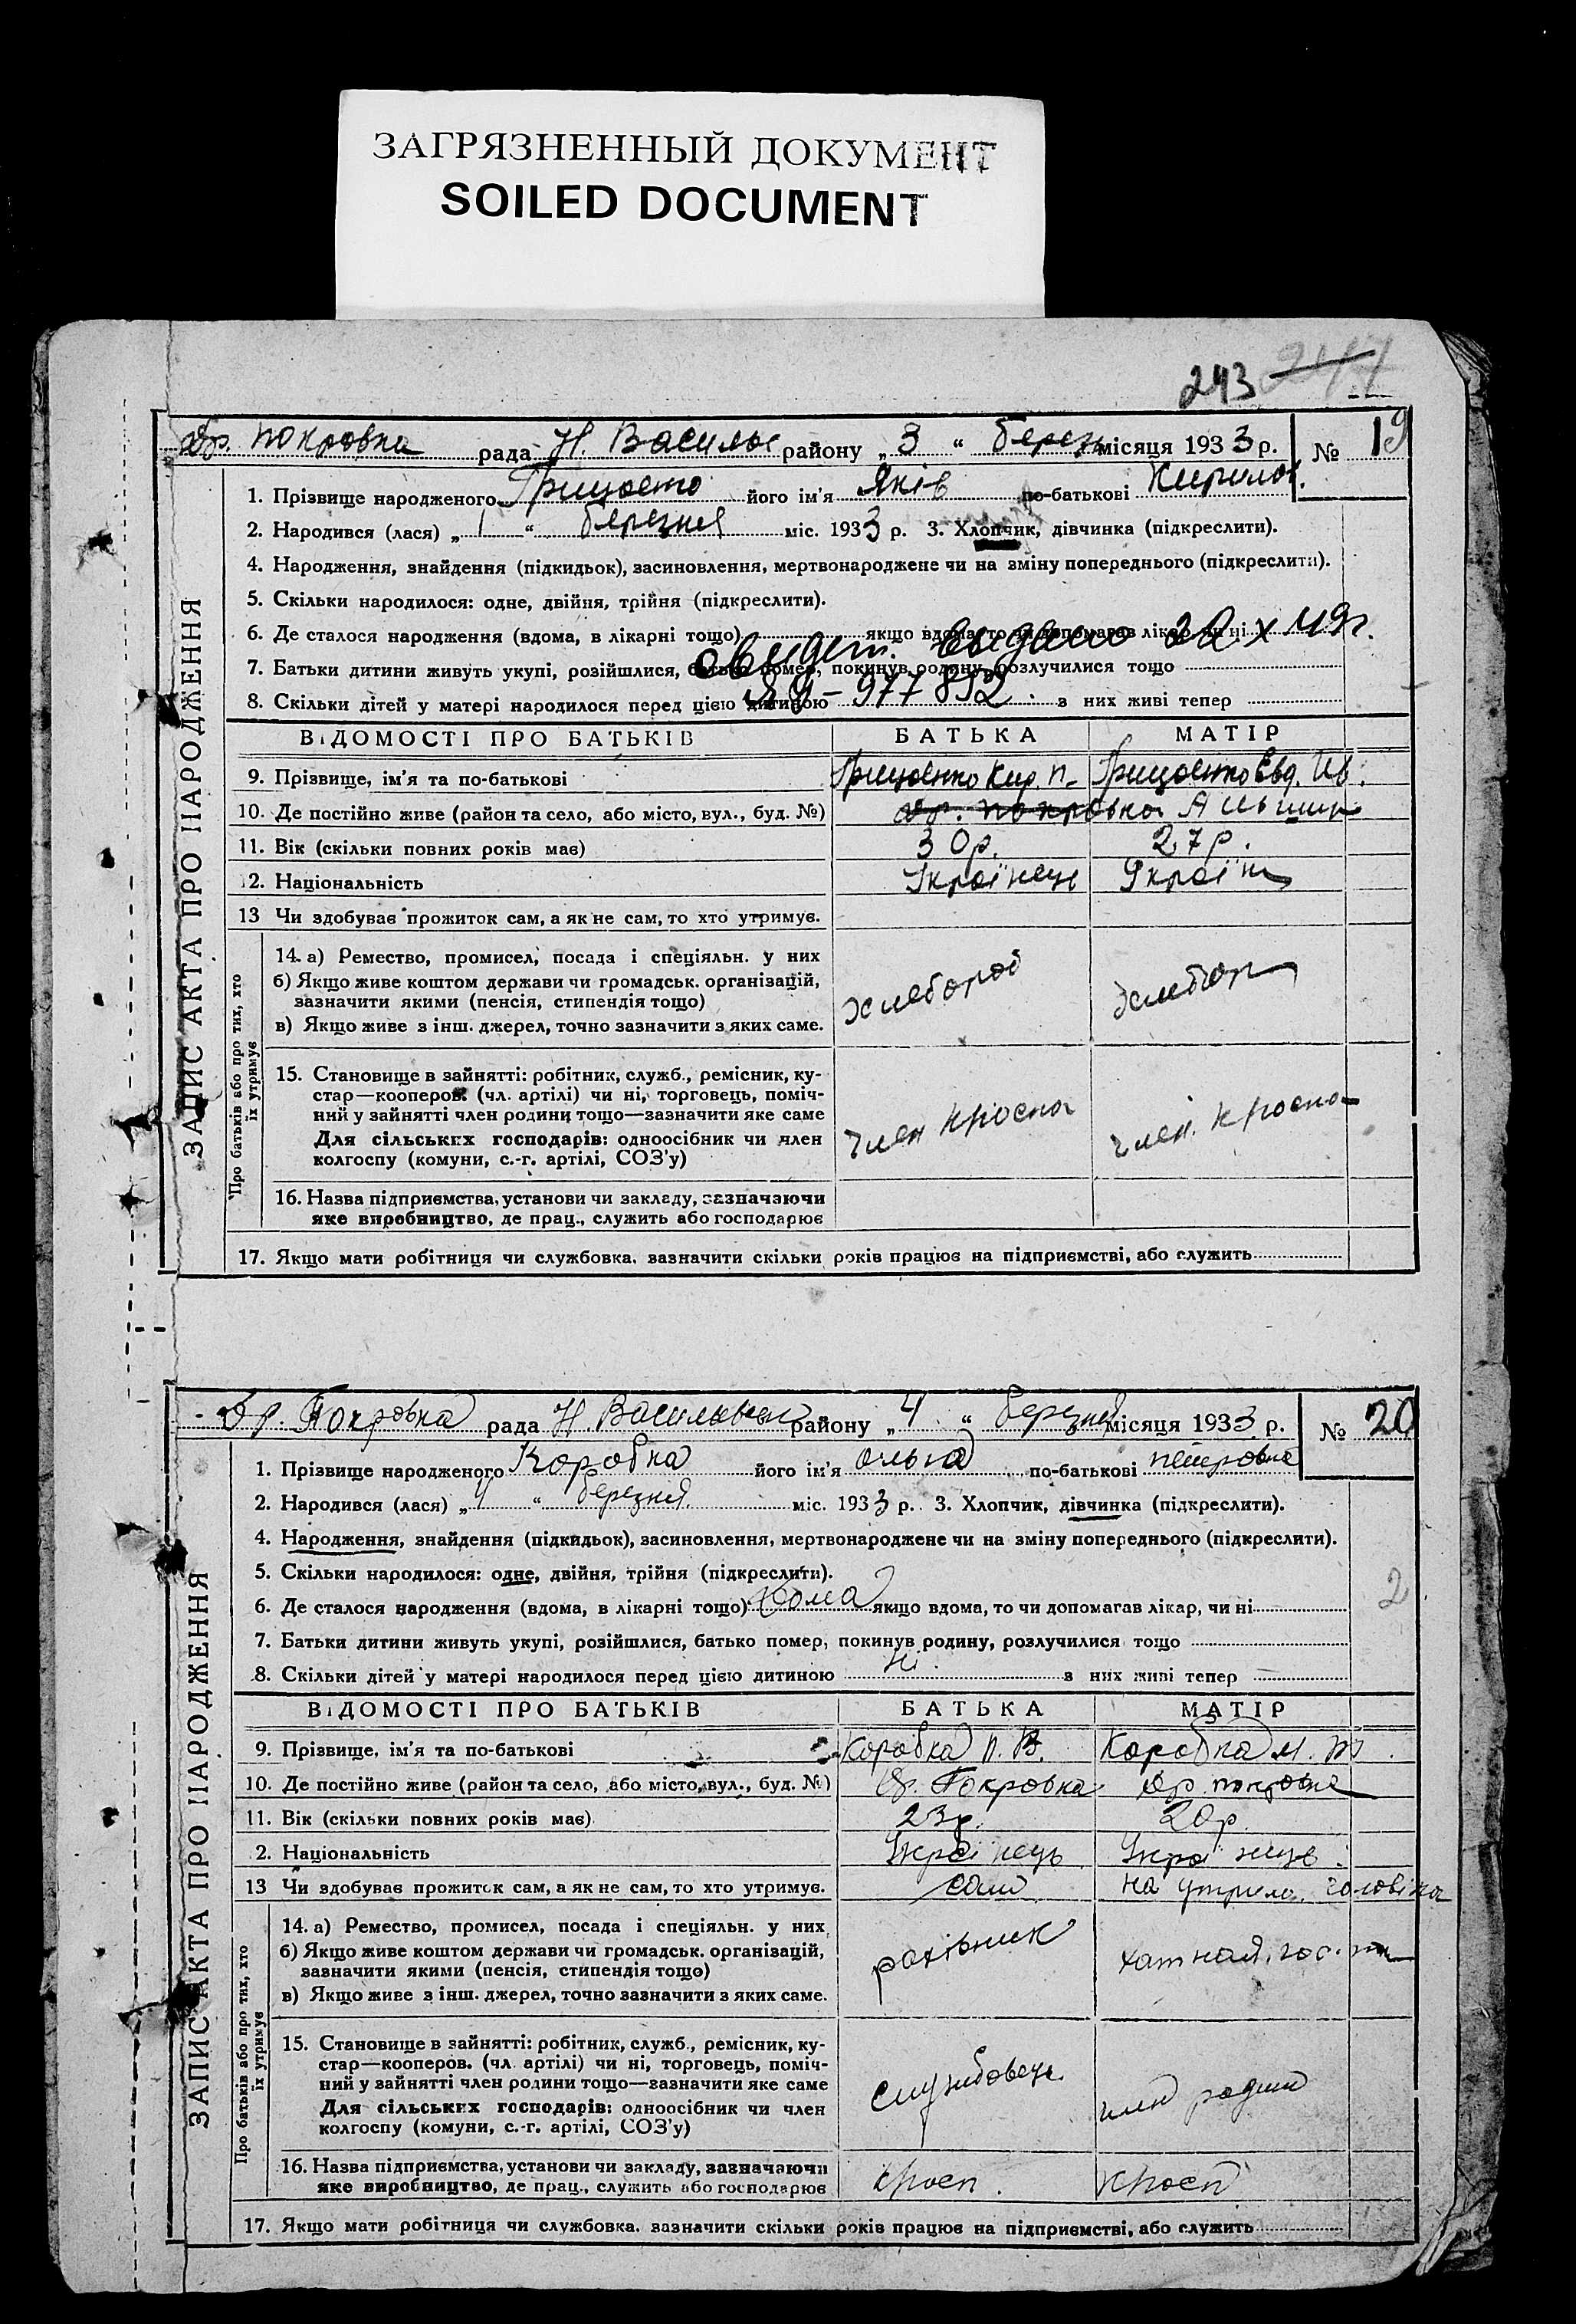 ЗАГРЯЗНЕННЫЙ ДОКУМЕНТ
SOILED DOCUMENT
243 244
Др. Покровка рада Н. Василь району „ 3 “ березн місяця 1933 р. № 19
1. Прізвище народженого Гриценко його ім'я Яків по-батькові Кирилов.
2. Народився (лася) „ 1 “ березня міс. 1933 р. 3. Хлопчик, дівчинка (підкреслити).
4. Народження, знайдення (підкидьок), засиновлення, мертвонароджене чи на зміну попереднього (підкреслити).
5. Скільки народилося: одне, двійня, трійня (підкреслити).
6. Де сталося народження (вдома, в лікарні тощо) якщо вдома, то чи допомагав лікар, чи ні
свидет. Выдано 22 X 49г.
7. Батьки дитини живуть укупі, розійшлися, батько помер, покинув родину, розлучилися тощо
977852
8. Скільки дітей у матері народилося перед цією дитиною з них живі тепер
ВІДОМОСТІ ПРО БАТЬКІВ БАТЬКА МАТІР
9. Прізвище, ім'я та по-батькові Гриценко Кир. П. Гриценко Євд. Ив.
10. Де постійно живе (район та село, або місто, вул., буд. №) Др. Покровка
11. Вік (скільки повних років має) 30р. 27р.
12. Національність Українець Україн
13 Чи здобував прожиток сам, а як не сам, то хто утримує.
14. а) Ремество, промисел, посада і спеціяльн. у них
б) Якщо живе коштом держави чи громадськ. організацій,
зазначити якими (пенсія, стипендія тощо) хлебороб хлебор
в) Якщо живе з інш. джерел, точно зазначити з яких саме.
15. Становище в зайнятті: робітник, служб., ремісник, ку-
стар—кооперов. (чл. артілі) чи ні, торговець, поміч-
ний у зайнятті член родини тощо—зазначити яке саме член член
Для сільських господарів: одноосібник чи член
колгоспу (комуни, с.-г. артілі, СОЗ'у)
16. Назва підприємства, установи чи закладу, зазначаючи
яке виробництво, де прац., служить або господарює
17. Якщо мати робітниця чи службовка, зазначити скільки років працює на підприємстві, або служить
ЗАПИС АКТА ПРО НАРОДЖЕННЯ
Про батьків або про тих, хто
їх утримує
Др. Покровка рада Н. Васильевск району „ 4 “ березня місяця 1933 р. № 20
1. Прізвище народженого Коробка його ім'я Ольга по-батькові Петровна
2. Народився (лася) „ 4 “ березня міс. 1933 р. 3. Хлопчик, дівчинка (підкреслити).
4. Народження, знайдення (підкидьок), засиновлення, мертвонароджене чи на зміну попереднього (підкреслити).
5. Скільки народилося: одне, двійня, трійня (підкреслити).
6. Де сталося народження (вдома, в лікарні тощо) дома якщо вдома, то чи допомагав лікар, чи ні 2
7. Батьки дитини живуть укупі, розійшлися, батько помер, покинув родину, розлучилися тощо
8. Скільки дітей у матері народилося перед цією дитиною ні з них живі тепер
ВІДОМОСТІ ПРО БАТЬКІВ БАТЬКА МАТІР
9. Прізвище, ім'я та по-батькові Коробка П. В. Коробка М.
10. Де постійно живе (район та село, або місто, вул., буд. №) Др. Покровка Др. Покровка
11. Вік (скільки повних років має) 23р. 20р.
2. Національність Українець Українец
13 Чи здобував прожиток сам, а як не сам, то хто утримує. сам на утрим. чоловіка
14. а) Ремество, промисел, посада і спеціяльн. у них
б) Якщо живе коштом держави чи громадськ. організацій, рахівник хатная
зазначити якими (пенсія, стипендія тощо)
в) Якщо живе з інш. джерел, точно зазначити з яких саме.
15. Становище в зайнятті: робітник, служб., ремісник, ку-
стар—кооперов. (чл. артілі) чи ні, торговець, поміч-
ний у зайнятті член родини тощо—зазначити яке саме службовець член родини
Для сільських господарів: одноосібник чи член
колгоспу (комуни, с.-г. артілі, СОЗ'у)
16. Назва підприємства, установи чи закладу, зазначаючи
яке виробництво, де прац., служить або господарює
17. Якщо мати робітниця чи службовка, зазначити скільки років працює на підприємстві, або служить
ЗАПИС АКТА ПРО НАРОДЖЕННЯ
Про батьків або про тих, хто
їх утримує